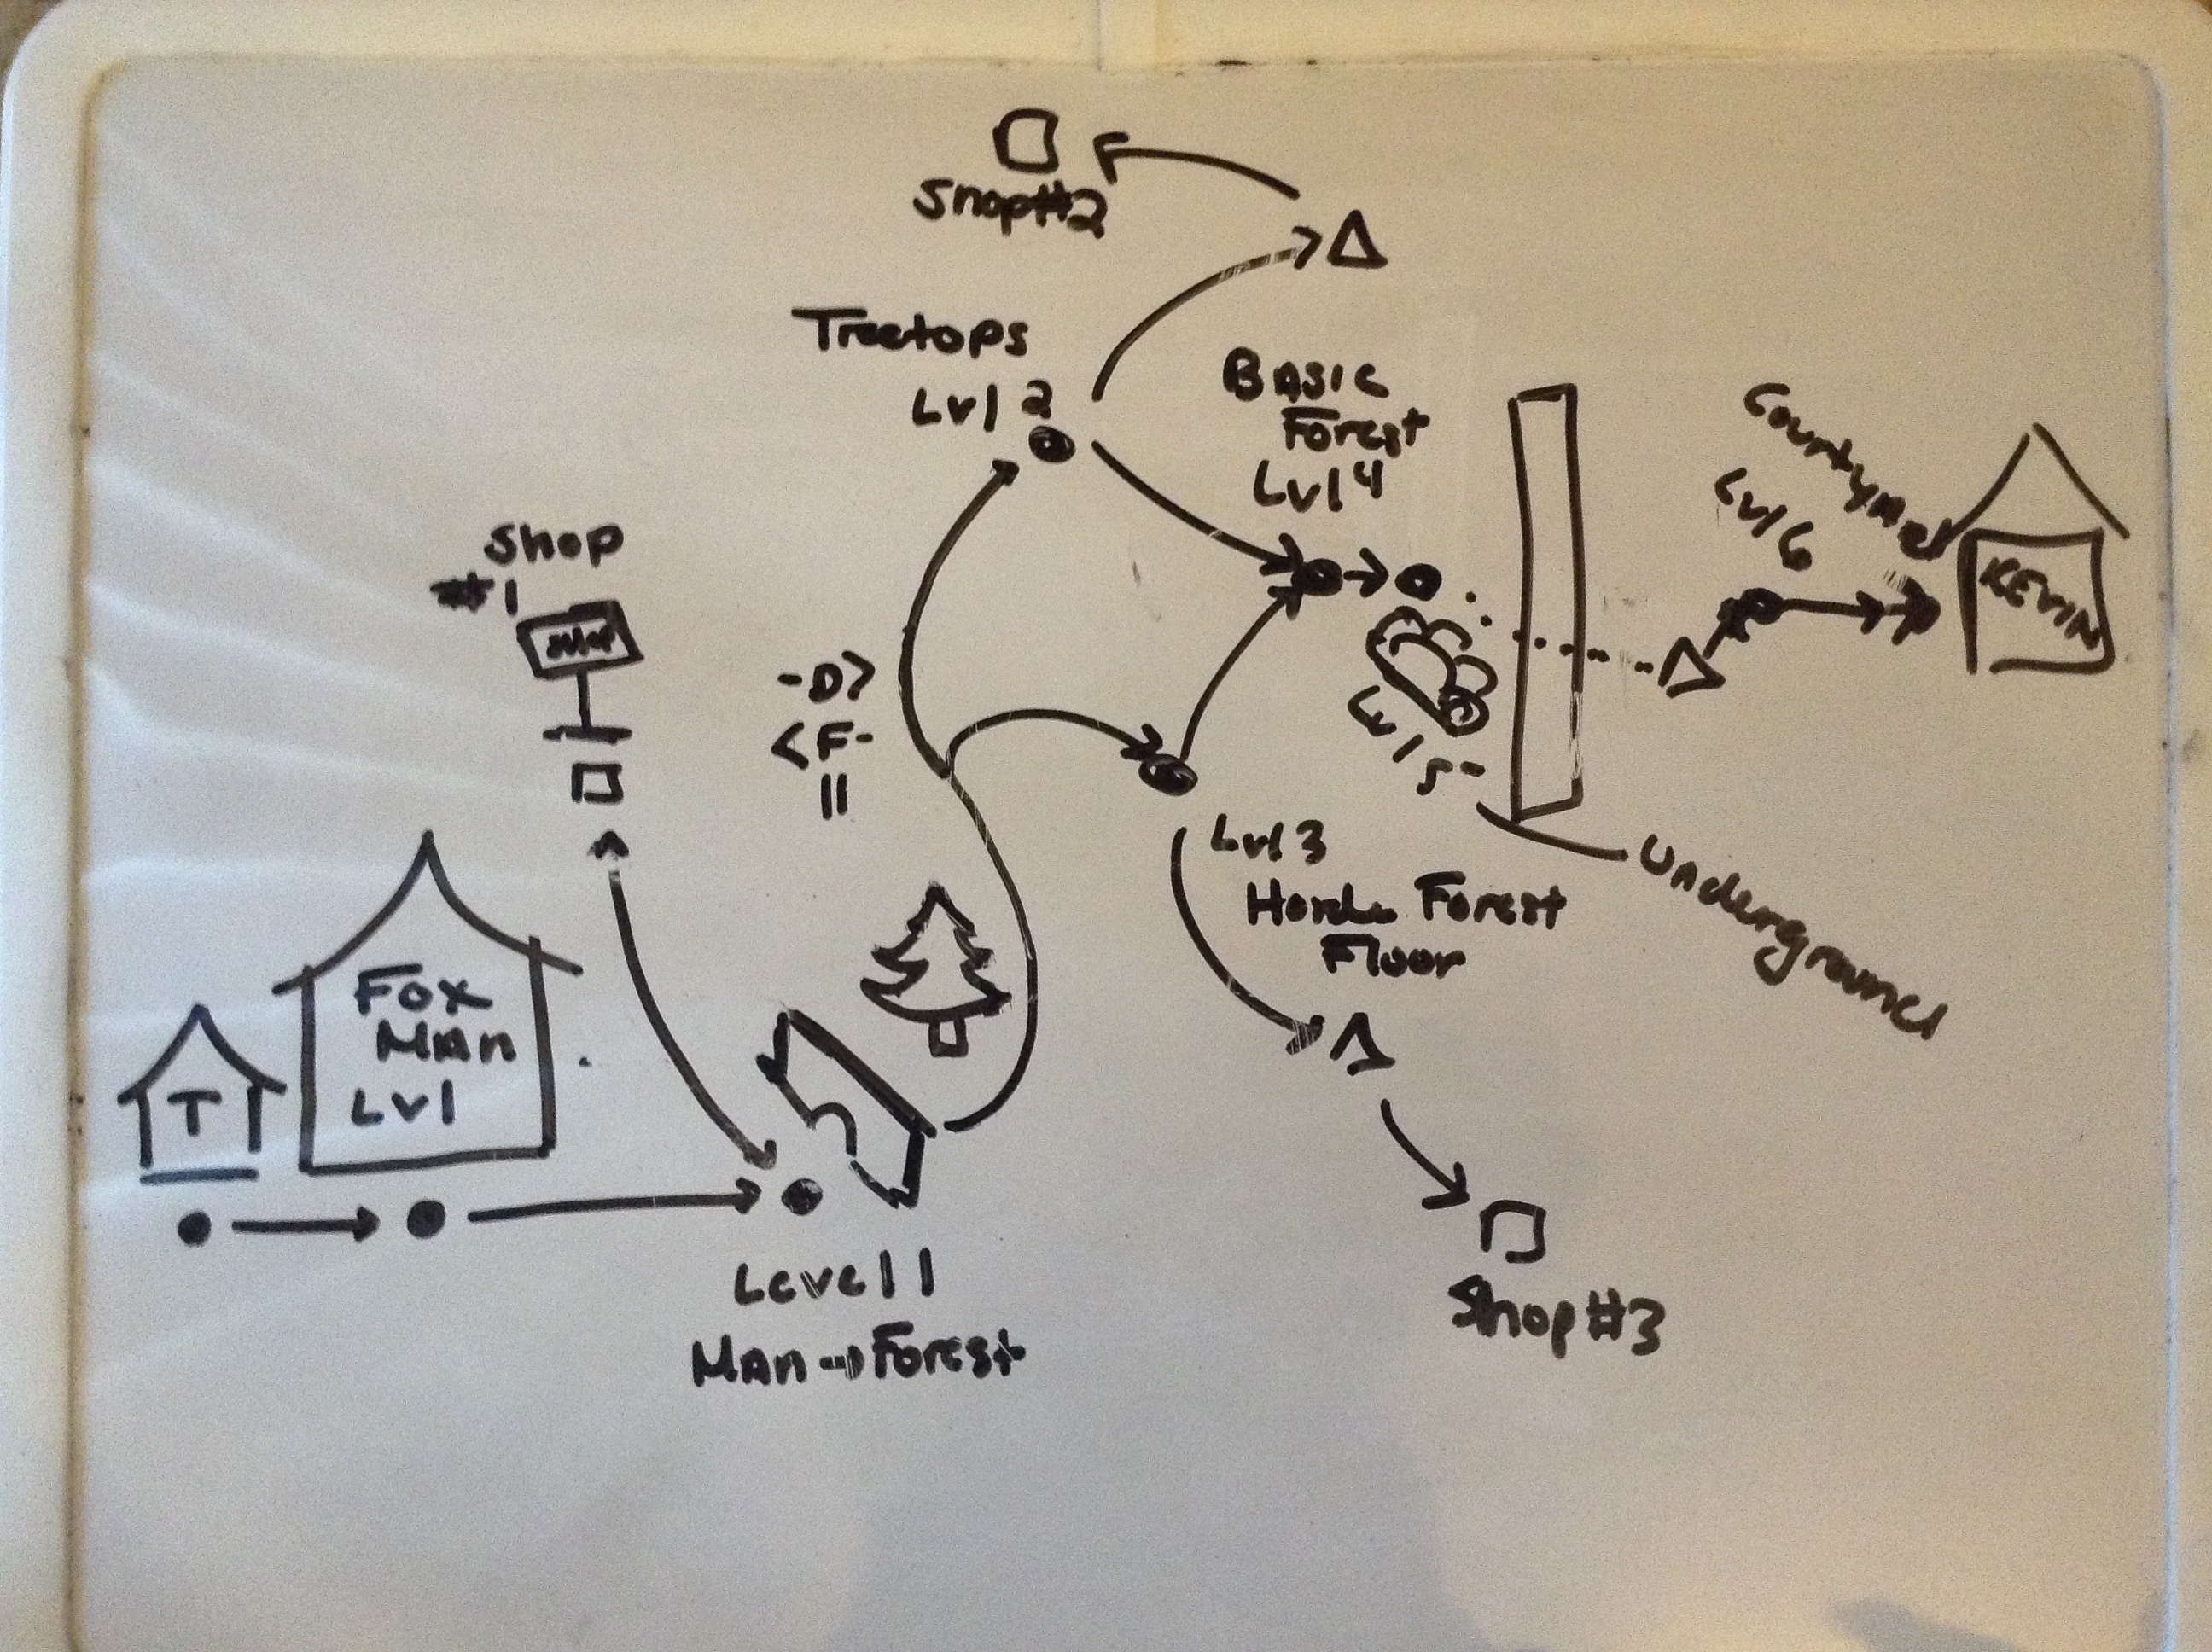 Shop#2
Treetops
Lvl 2
BASIC
Forest
Lvl 4
Courtyard
Lvl 6
KEVIN
Shop
#1
-D>
<F-
||
Lvl 5
Underground
Lvl 3
Forest
Floor
Fox
MAn
Lvl
T
Level 1
MAn → Forest
Shop #3